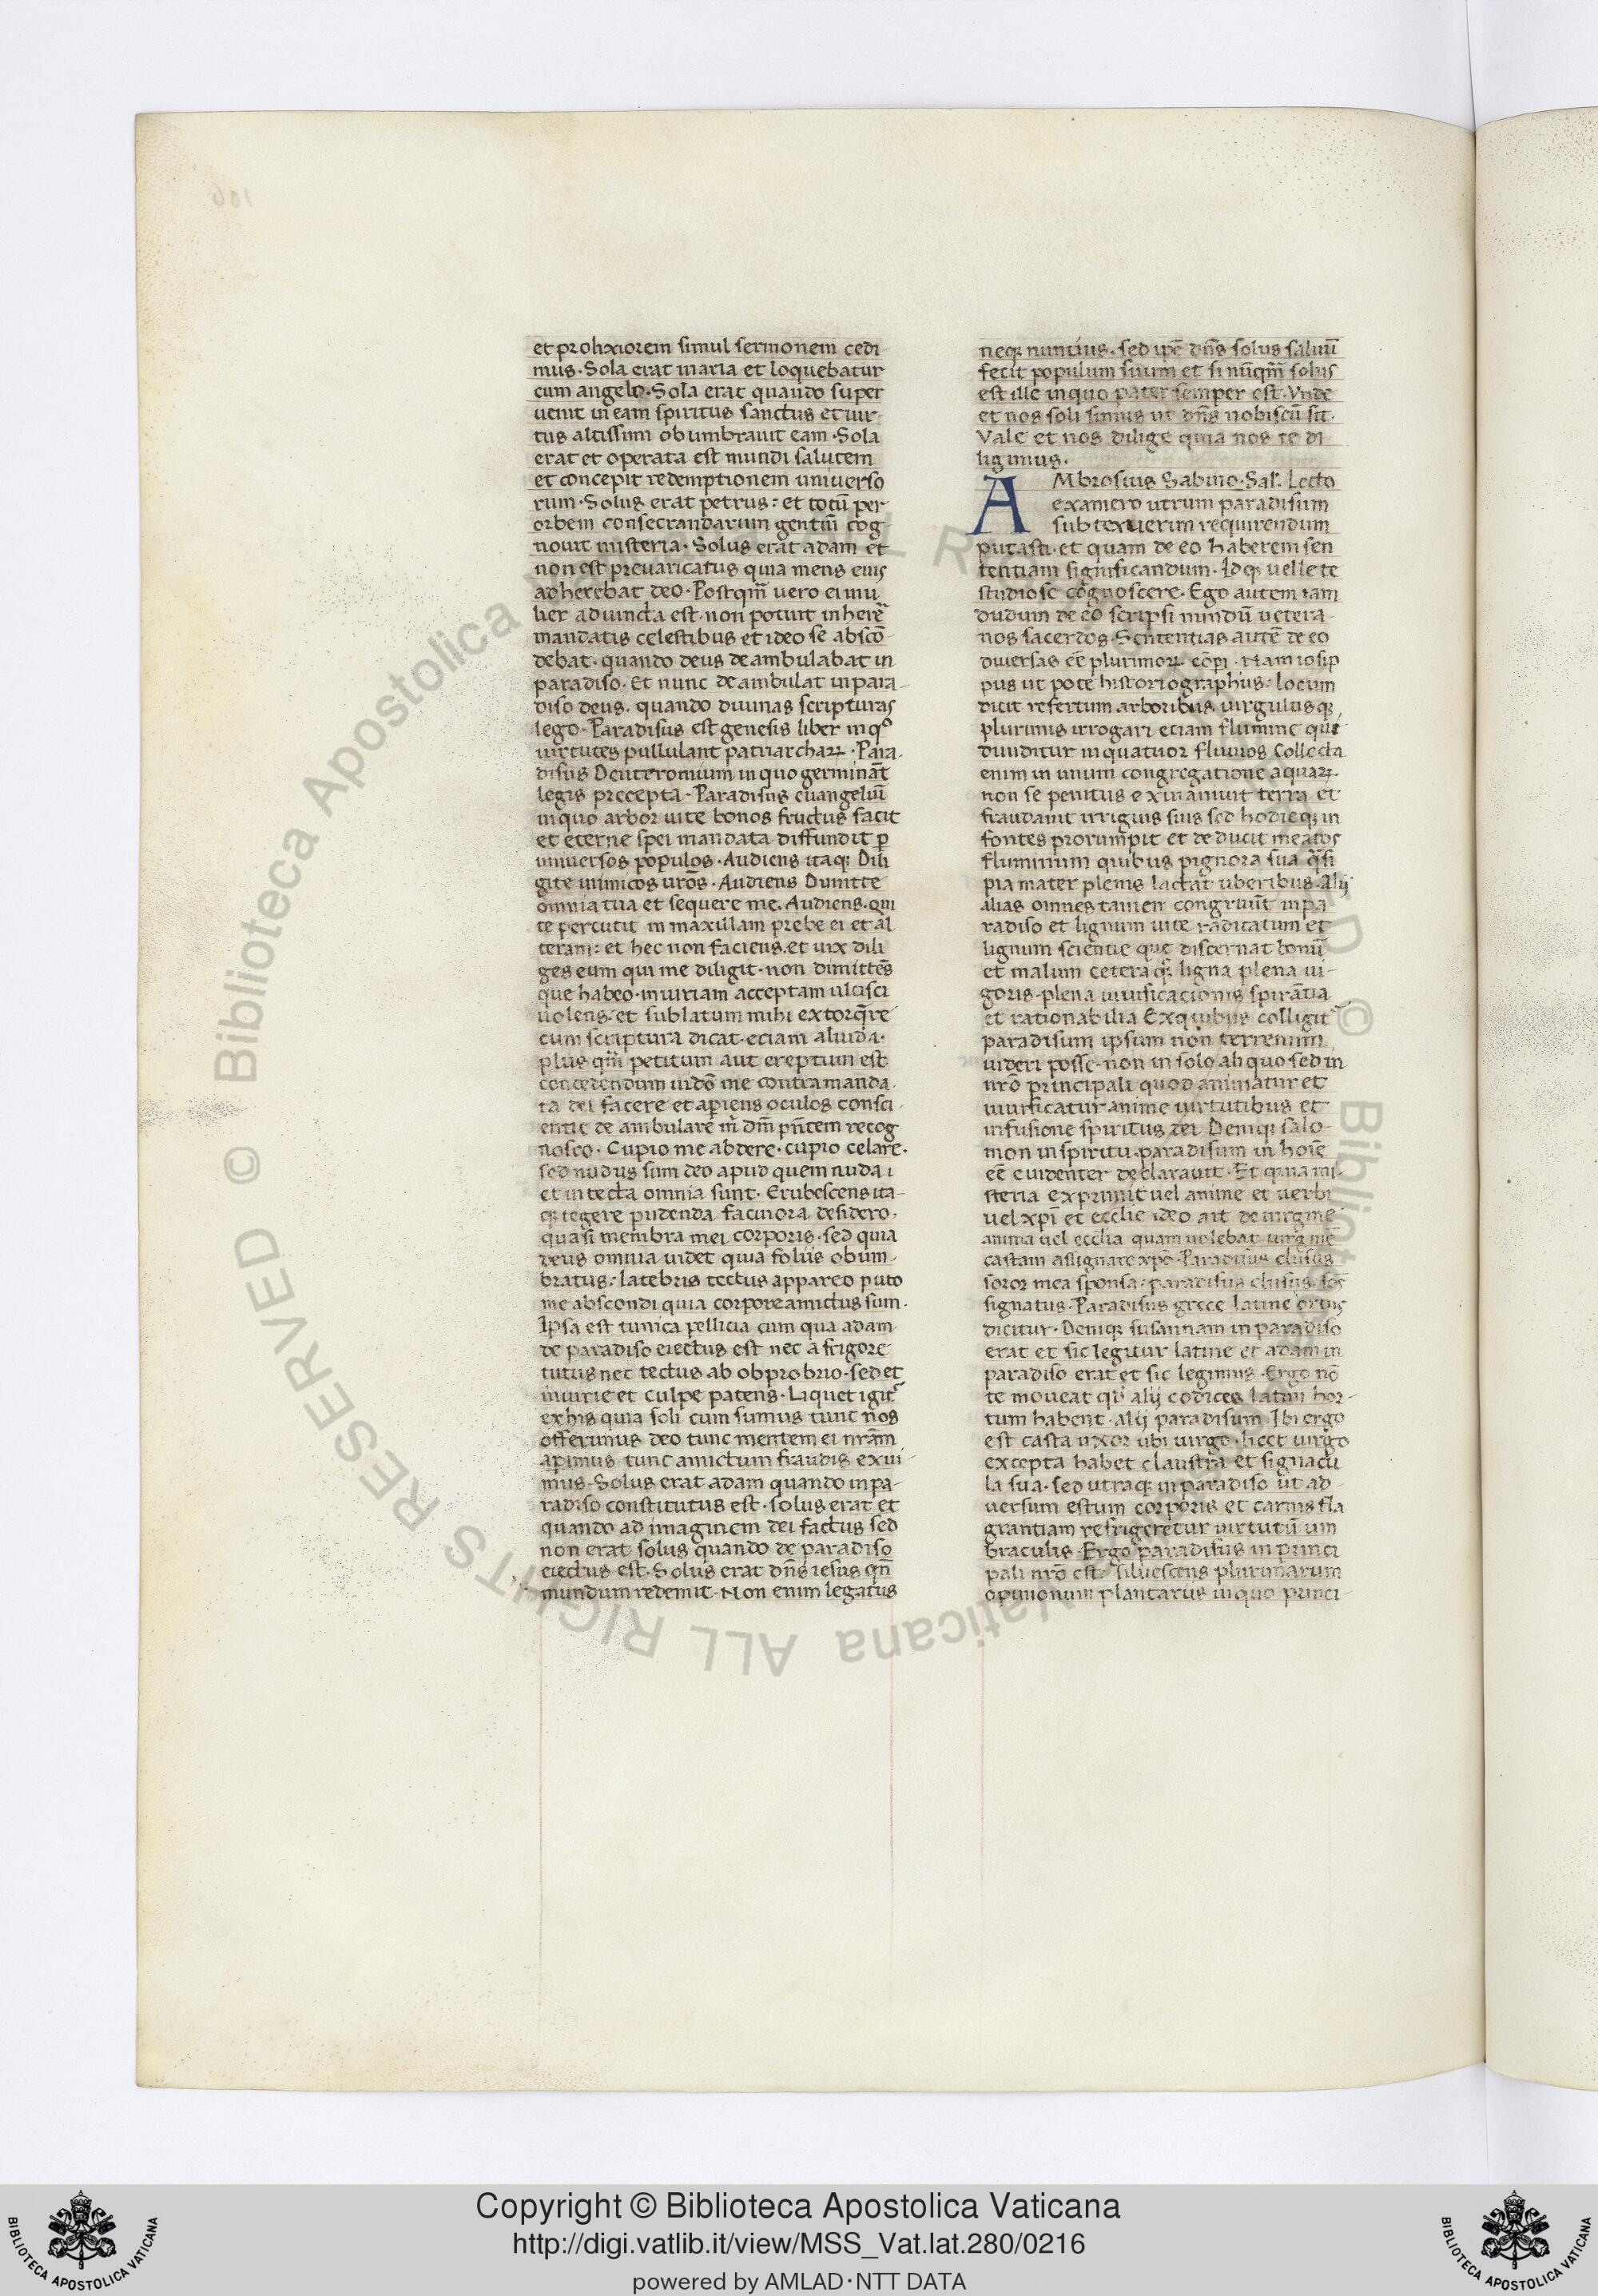 et prolixiorem simul sermonem cedi
mus. Sola erat maria et loquebatur
cum angelo. Sola erat quando super
uenit in eam spiritus sanctus et uir-
tus altissimi obumbrauit eam. Sola
erat et operata est mundi salutem
et concepit redemptionem universo
rum. Solus erat petrus: et totū per
orbem consecrandarum gentiū cog-
nouit misteria. Solus erat adam et
non est preuaricatus quia mens eius
adherebat deo. Postqm̄ uero ei mu
lier adiuncta est non potuit inhere
mandatis celestibus et ideo se abscō-
debat. quando deus deambulabat in
paradiso. Et nunc deambulat in para-
diso deus. quando diuinas scripturas
lego. Paradisus est genesis liber in qo
uirtutes pullulant patriarchaꝝ. Para-
disus Deuteromium in quo germināt
legis precepta. Paradisus euangeliū
in quo arbor uite bonos fructus facit
et eterne spei mandata diffundit ꝑ
uniuersos populos. Audiens itaqꝫ Dili
gite inimicos uros. Audiens Dimitte
omnia tua et sequere me. Audiens. qui
te percutit in maxillam prebe ei et al
teram: et hec non faciens. et uix dili
ges eum qui me diligit. non dimittēs
que habeo. iniuriam acceptam ulcisci
uolens. et sublatum mihi extorqre
cum scriptura dicat. eciam aliuida.
plus qm̄ petitum aut ereptum est
concedendum uidō me contra manda-
ta dei facere et apiens oculos consci-
entie deambulare m dm pntem recog
nosco. Cupio me abdere. cupio celare.
sed nudus sum deo apud quem nuda i
et intecta omnia sunt. Erubescens ita-
qꝫ tegere pudenda facinora desidero.
quasi membra mei corporis. sed quia
deus omnia uidet quia foliis obum-
bratus: latebris tectus appareo puto
me abscondi quia corpore amictus sum.
Ipsa est tunica pellicia cum qua adam
de paradiso eiectus est nec a frigore
tutus nec tectus ab obprobrio. sed et
iniurie et culpe patens. Liquet igit
ex his quia soli cum sumus tunc nos
offerimus deo tunc mentem ei nram
aperimus tunc amictum fraudis exui-
mus. Solus erat adam quando in pa-
radiso constitutus est. solus erat et
quando ad imaginem dei factus sed
non erat solus quando de paradiso
eiectus est. Solus erat dn̄s iesus qn̄
mundum redemit. Non enim legatus
neqꝫ nuntius. sed ipē dn̄s solus saluū
fecit populum suum et si nūqm̄ solus
est ille in quo pater semper est. Vnde
et nos soli simus ut dn̄s nobiscū sit.
Vale et nos dilige quia nos te di
ligimus.
AMbrosius Sabino. Sal. Lecto
examero utrum paradisum
subtexuerim requirendum
putasti. et quam de eo haberem sen
tentiam significandum. Idqꝫ uelle te
studiose cognoscere. Ego autem iam
dudum de eo scripsi nundū uetera-
nos sacerdos. Sententias autē de eo
diuersas eē plurimoꝝ cōpi. Nam iosip
pus ut pote historiographus: locum
dicit refertum arboribus uirgultisqꝫ
plurimis irrogari eciam flumine qui
diuiditur in quatuor fluuios Collecta
enim in unum congregatione aquaꝝ
non se penitus exinaniuit terra et
fraudauit irriguis suis sed hodieqꝫ in
fontes prorumpit et deducit meatos
fluminum quibus pignora sua qsi
pia mater plenis lactat uberibus. Alij
alias omnes tamen congruūt in pa
radiso et lignum uite radicatum et
lignum scientie que discernat bonū
et malum cetera qꝫ ligna plena ui-
goris. plena uiuificacionis spirātia
et rationabilia Exquibus colligit
paradisum ipsum non terrenum
uideri posse. non in solo aliquo sed in
nrō principali quod animatur et
uiuificatur anime uirtutibus et
infusione spiritus dei. Deniqꝫ salo-
mon in spiritu. paradisum in hoīe
eē euidenter declarauit. Et quia mi-
steria exprimit uel anime et uerbi
uel xpi et ecclie ideo ait de uirgine
anima uel ecclia quam uolebat uirginē
castam assignare xpō. Paradisus clusus
soror mea sponsa: paradisus clusus fōs
signatus. Paradisus grece latine ortus
dicitur. Deniqꝫ susannam in paradiso
erat et sic legitur latine et adam in
paradiso erat et sic legimus. Ergo nō
te moueat qd alij codices latini hor-
tum habent. alij paradisum. Ibi ergo
est casta uxor ubi uirgo. licet uirgo
excepta habet claustra et signacu
la sua. sed utraqꝫ in paradiso ut ad-
uersum estum corporis et carnis fla
grantiam refrigeretur uirtutū um
braculis. Ergo paradisus in princi
pali nrō est. siluescens plurimarum
opinionum plantariis in quo princi-
© Biblioteca Apostolica Vaticana ALL RIGHTS RESERVED
Copyright © Biblioteca Apostolica Vaticana
http://digi.vatlib.it/view/MSS_Vat.lat.280/0216
powered by AMLAD·NTT DATA
BIBLIOTECA APOSTOLICA VATICANA
BIBLIOTECA APOSTOLICA VATICANA